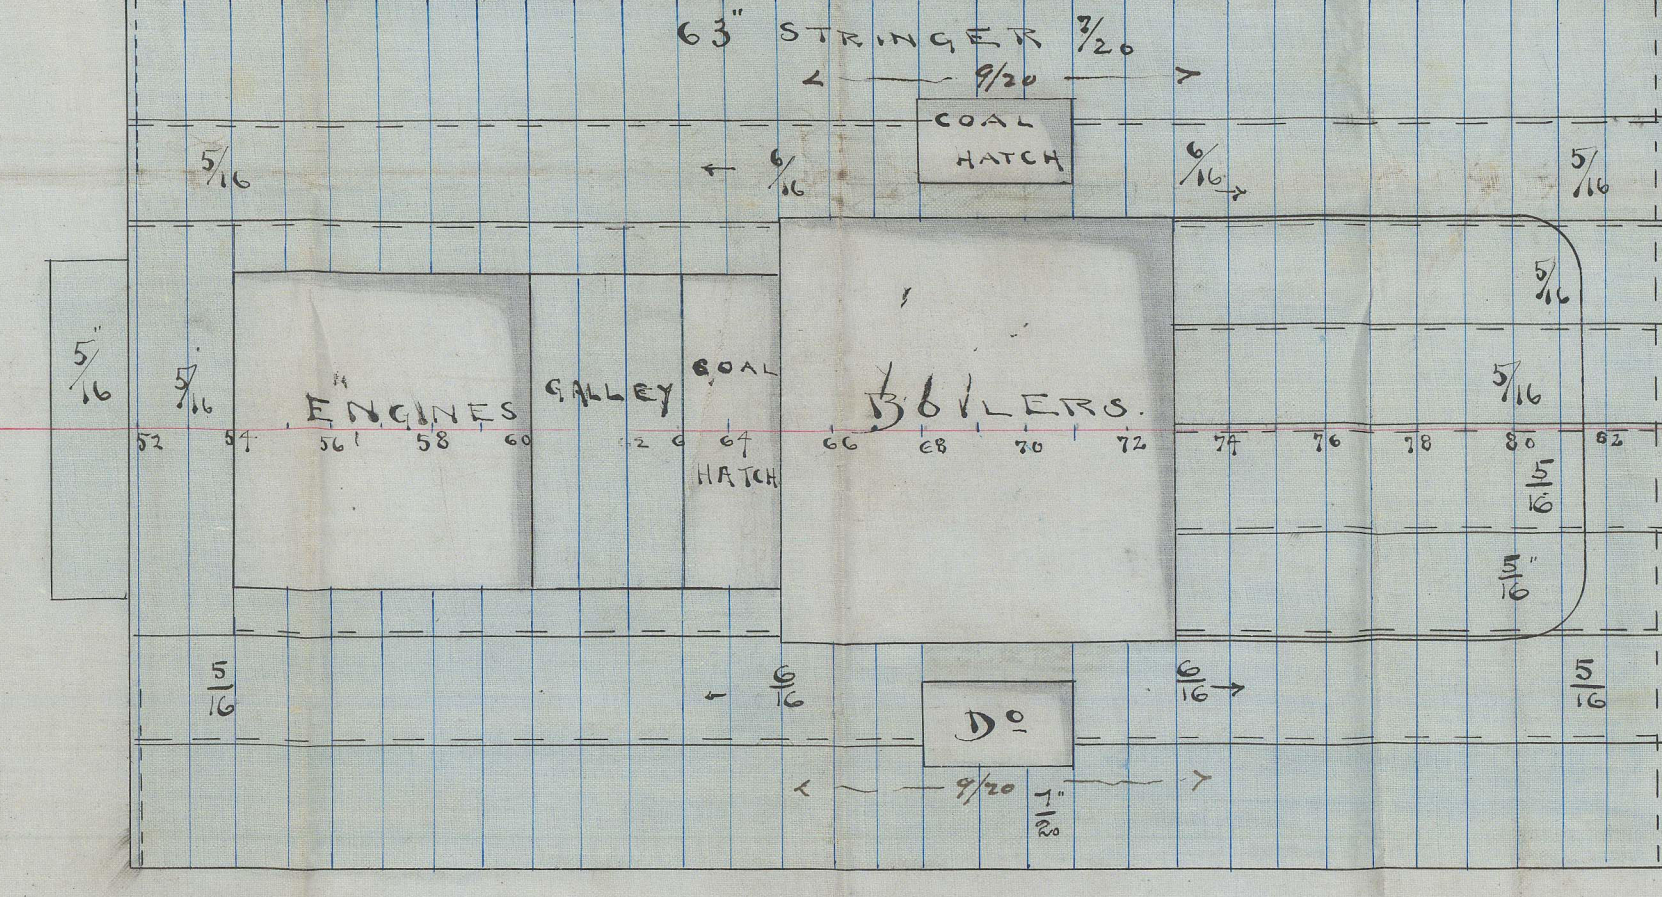 63" STRINGER 7/20
9/20
COAL
HATCH
5/16
← 6/16
6/16 →
5/16
5/16
5"/16
5/16
ENGINES
GALLEY
COAL
HATCH
BOILERS.
5/16
52 54 56 58 60 62 64 66 68 70 72 74 76 78 80 82
5/16
5"/16
5/16
← 6/16
6/16 →
5/16
Dº
9/20
7"/20